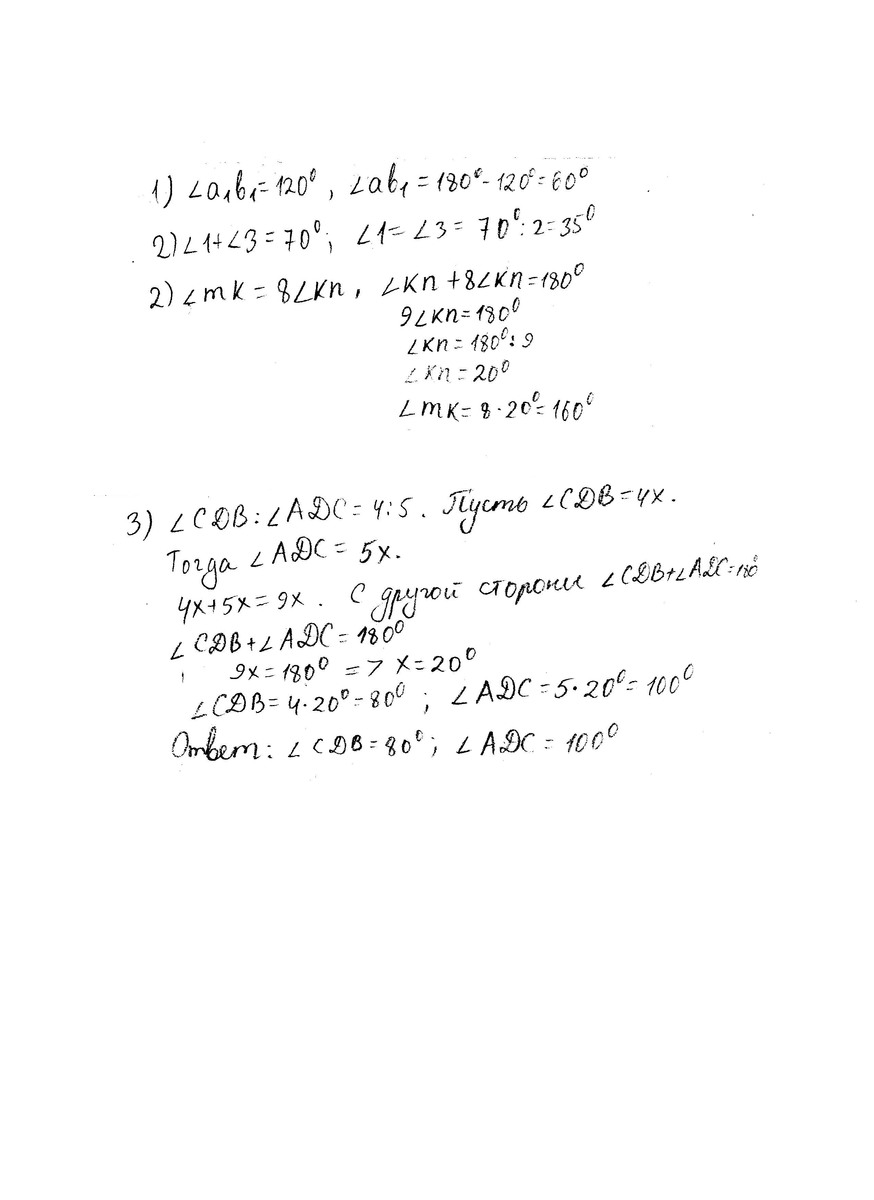 1) ∠a₁b₁=120⁰, ∠ab₁=180⁰-120⁰=60⁰
2) ∠1+∠3=70⁰; ∠1=∠3=70⁰:2=35⁰
2) ∠mk=8∠kn, ∠kn+8∠kn=180⁰
9∠kn=180⁰
∠kn=180⁰:9
∠kn=20⁰
∠mk=8·20⁰=160⁰
3) ∠CDB:∠ADC=4:5. Пусть ∠CDB=4x.
Тогда ∠ADC=5x.
4x+5x=9x. С другой стороны ∠CDB+∠ADC=180⁰
∠CDB+∠ADC=180⁰
9x=180⁰ => x=20⁰
∠CDB=4·20⁰=80⁰; ∠ADC=5·20⁰=100⁰
Ответ: ∠CDB=80⁰; ∠ADC=100⁰